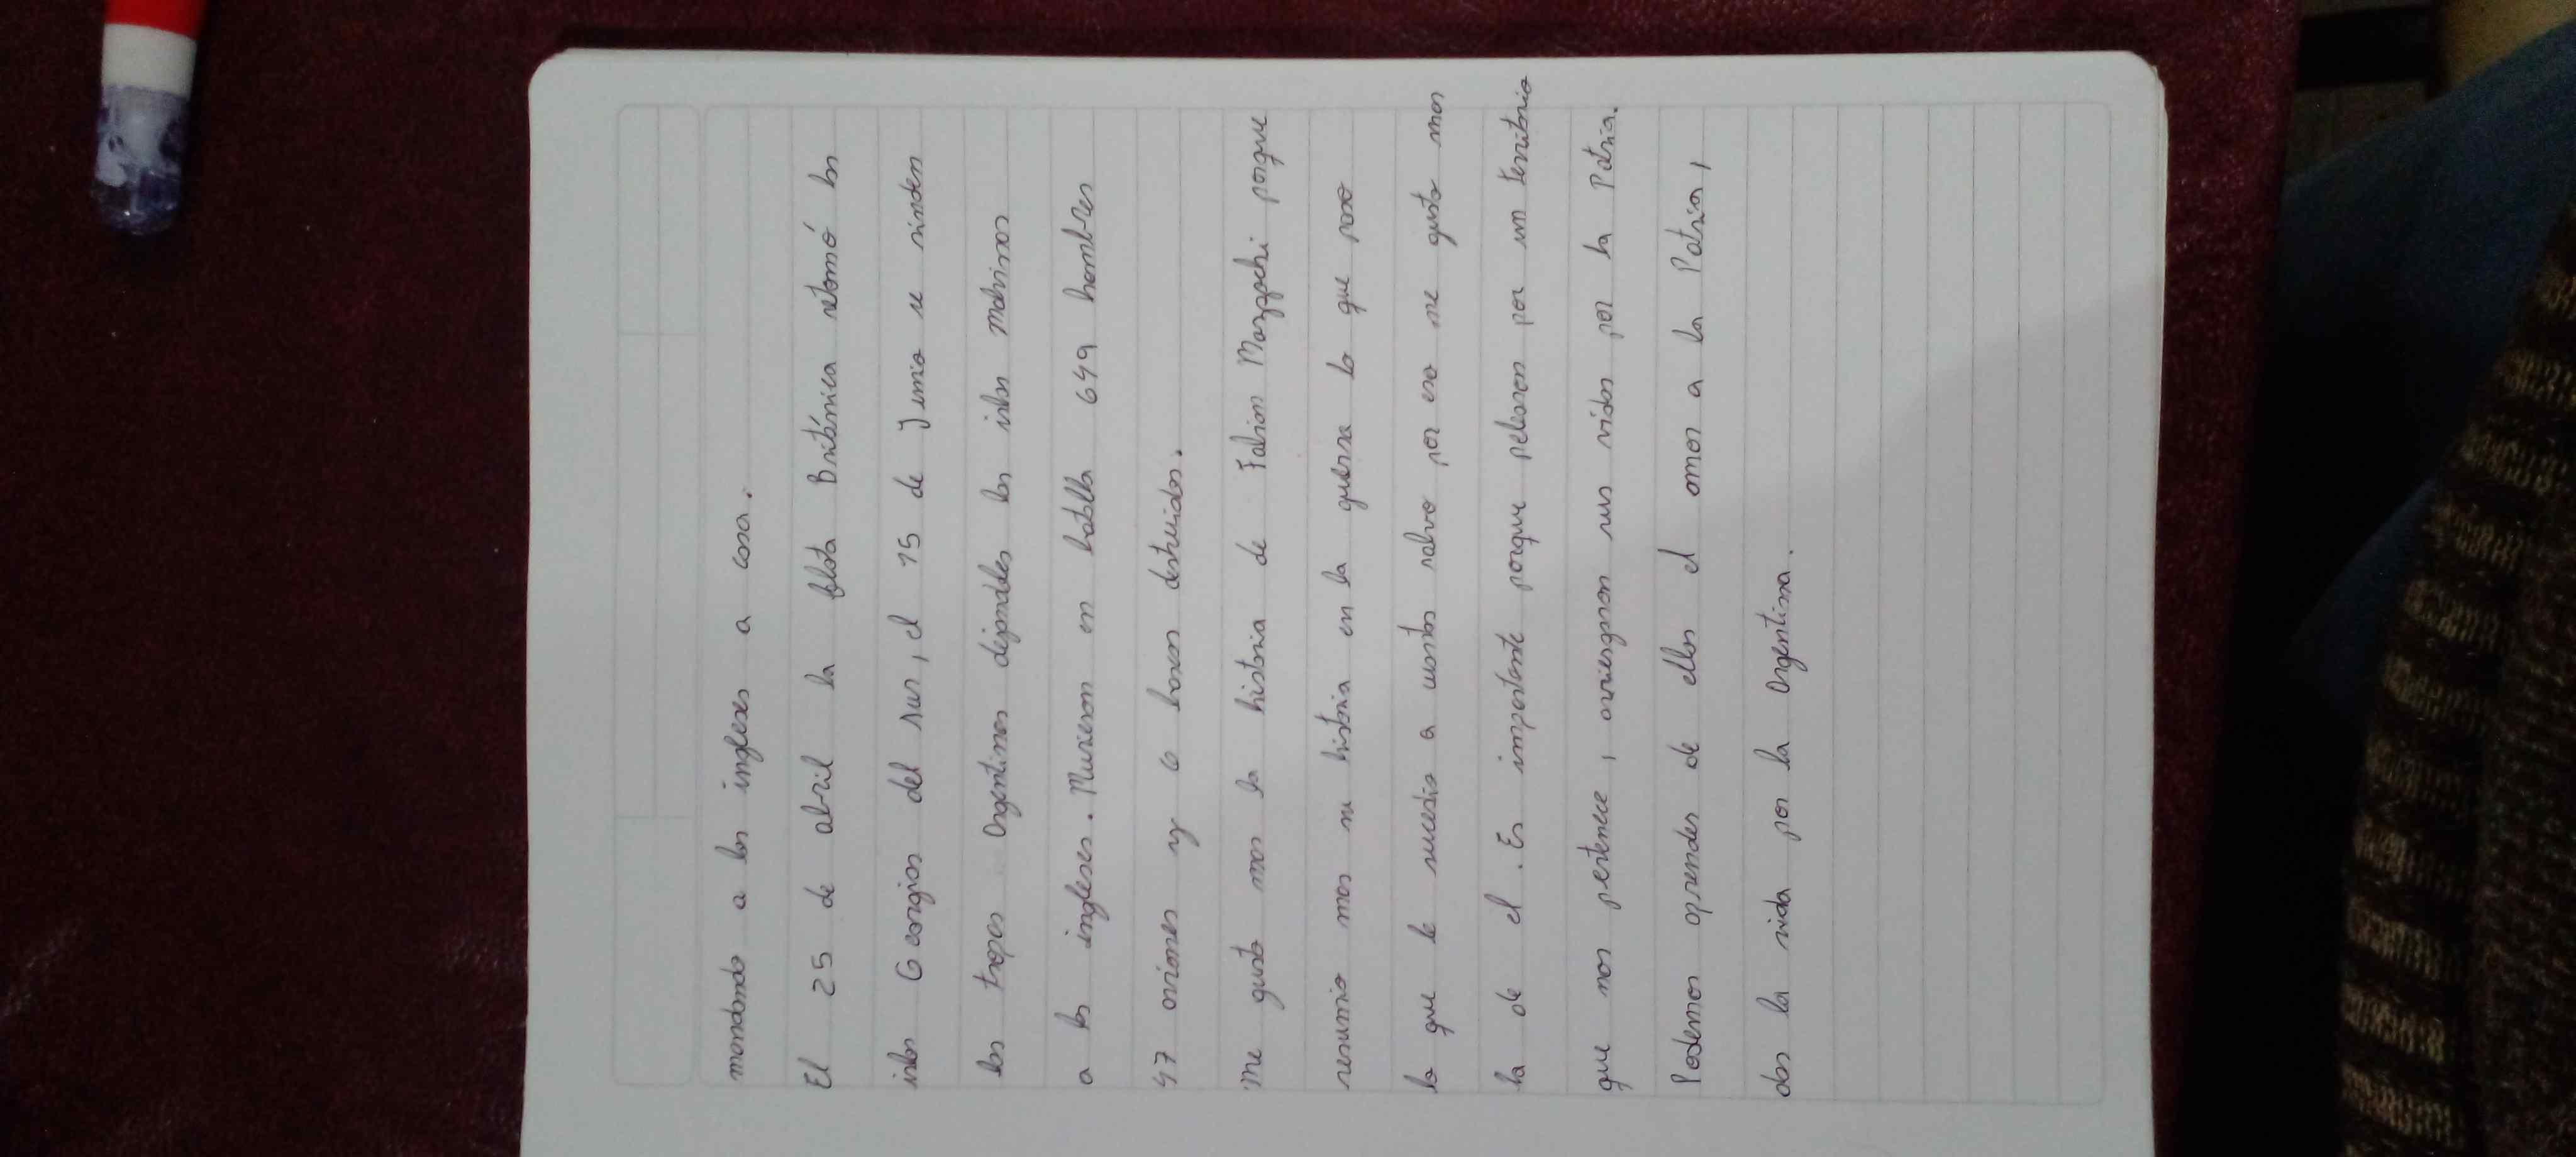 mandando a los ingleses a casa.
El 25 de abril la flota Británica retomó las
islas Georgias del sur, el 15 de Junio se rinden
las tropas Argentinas dejandoles las islas malvinas
a los ingleses. Murieron en batalla 649 hombres
47 aviones y 6 barcos destruidos.
Me gusto mas la historia de Fabian Mazzochi porque
resumio mas su historia en la guerra lo que paso
lo que le sucedio a cuantos salvo por eso me gusto mas
la de el. Es importante porque pelearon por un territorio
que nos pertenece, arriesgaron sus vidas por la Patria.
Podemos aprender de ellos el amor a la Patria,
dar la vida por la Argentina.